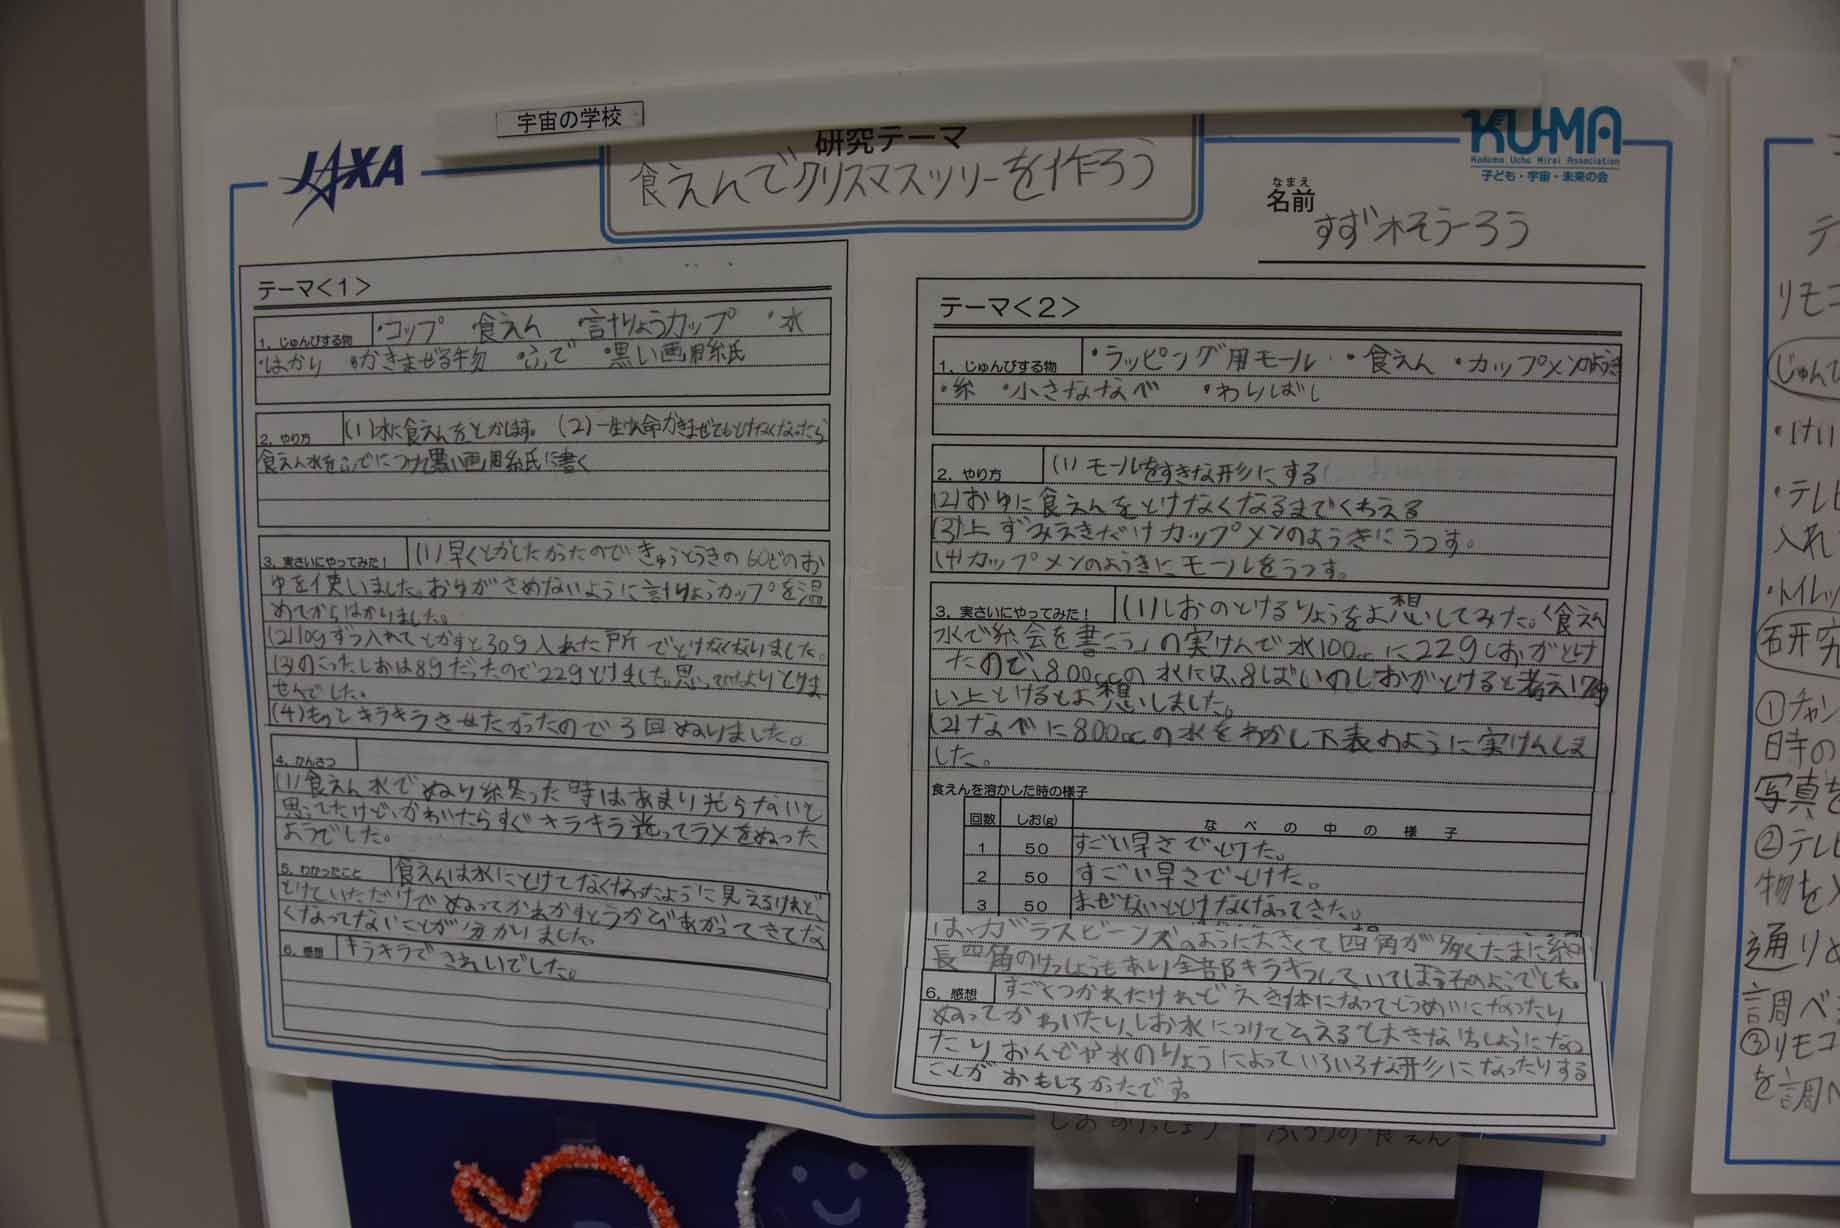 宇宙の学校
JAXA
研究テーマ
食えんでクリスマスツリーを作ろう
KU-MA
Kodomo Uchu Mirai Association
子ども・宇宙・未来の会
なまえ
名前
すず木そうーろう
テーマ<1>
1. じゅんびする物 ・コップ 食えん ・計りょうカップ ・水
・はかり ・かきまぜる物 ・ふで ・黒い画用紙
2. やり方 (1)水に食えんをとかします。(2)一生けん命かきまぜてもとけなくなったら
食えん水をふでにつけ黒い画用紙に書く
3. 実さいにやってみた! (1)早くとかしたかったのできゅうとうきの60どのお
ゆを使いました。おゆがさめないように計りょうカップを温
めてからはかりました。
(2)10gずつ入れてとかすと30g入れた所でとけなくなりました。
(3)のこったしおは8gだったので22gとけました。思ってたよりとけま
せんでした。
(4)もっとキラキラさせたかったので3回ぬりました。
4. かんさつ
(1)食えん水でぬり終った時はあまり光らないと
思ってたけど、かわいたらすぐキラキラ光ってラメをぬった
ようでした。
5. わかったこと 食えんは水にとけてなくなったように見えるけれど、
とけていただけでぬってかわかすとうかびあがってきてな
くなってないことが分かりました。
6. 感想 キラキラできれいでした。
テーマ<2>
1. じゅんびする物 ・ラッピング用モール ・食えん ・カップメンのようき
・糸 ・小さななべ ・わりばし
2. やり方 (1)モールをすきな形にする
(2)おゆに食えんをとけなくなるまでくわえる
(3)上ずみえきだけカップメンのようきにうつす。
(4)カップメンのようきにモールをうつす。
3. 実さいにやってみた! (1)しおのとけるりょうをよ想してみた。く食えん
水で絵を書こう」の実けんで水100ccに22gしおがとけ
たので、800ccの水には、8ばいのしおがとけると考え
い上とけるとよ想しました。
(2)なべに800ccの水をわかし下表のように実けんしま
した。
食えんを溶かした時の様子
回数 しお(g) なべの中の様子
1 50 すごい早さでとけた。
2 50 すごい早さでとけた。
3 50 まぜないととけなくなってきた。
は、ガラスビーズのように大きくて四角が多くたまに細
長四角のけっしょうもあり全部キラキラしていてほう石のようでした。
6. 感想 すごくつかれたけれどえき体になってとうめいになったり
ぬってかわいたり、しお水につけて大きなけっしょうになっ
たりおんどや水のりょうによっていろいろな形になったりする
ことがおもしろかったです。
しおのけっしょう
ふつうの食えん
テ
リモコ
じゅんび
・けい
・テレビ
入れ
・トイレッ
研究
①チャン
時の
写真を
②テレビ
物を
通りぬ
調べ
③リモコ
を調べ